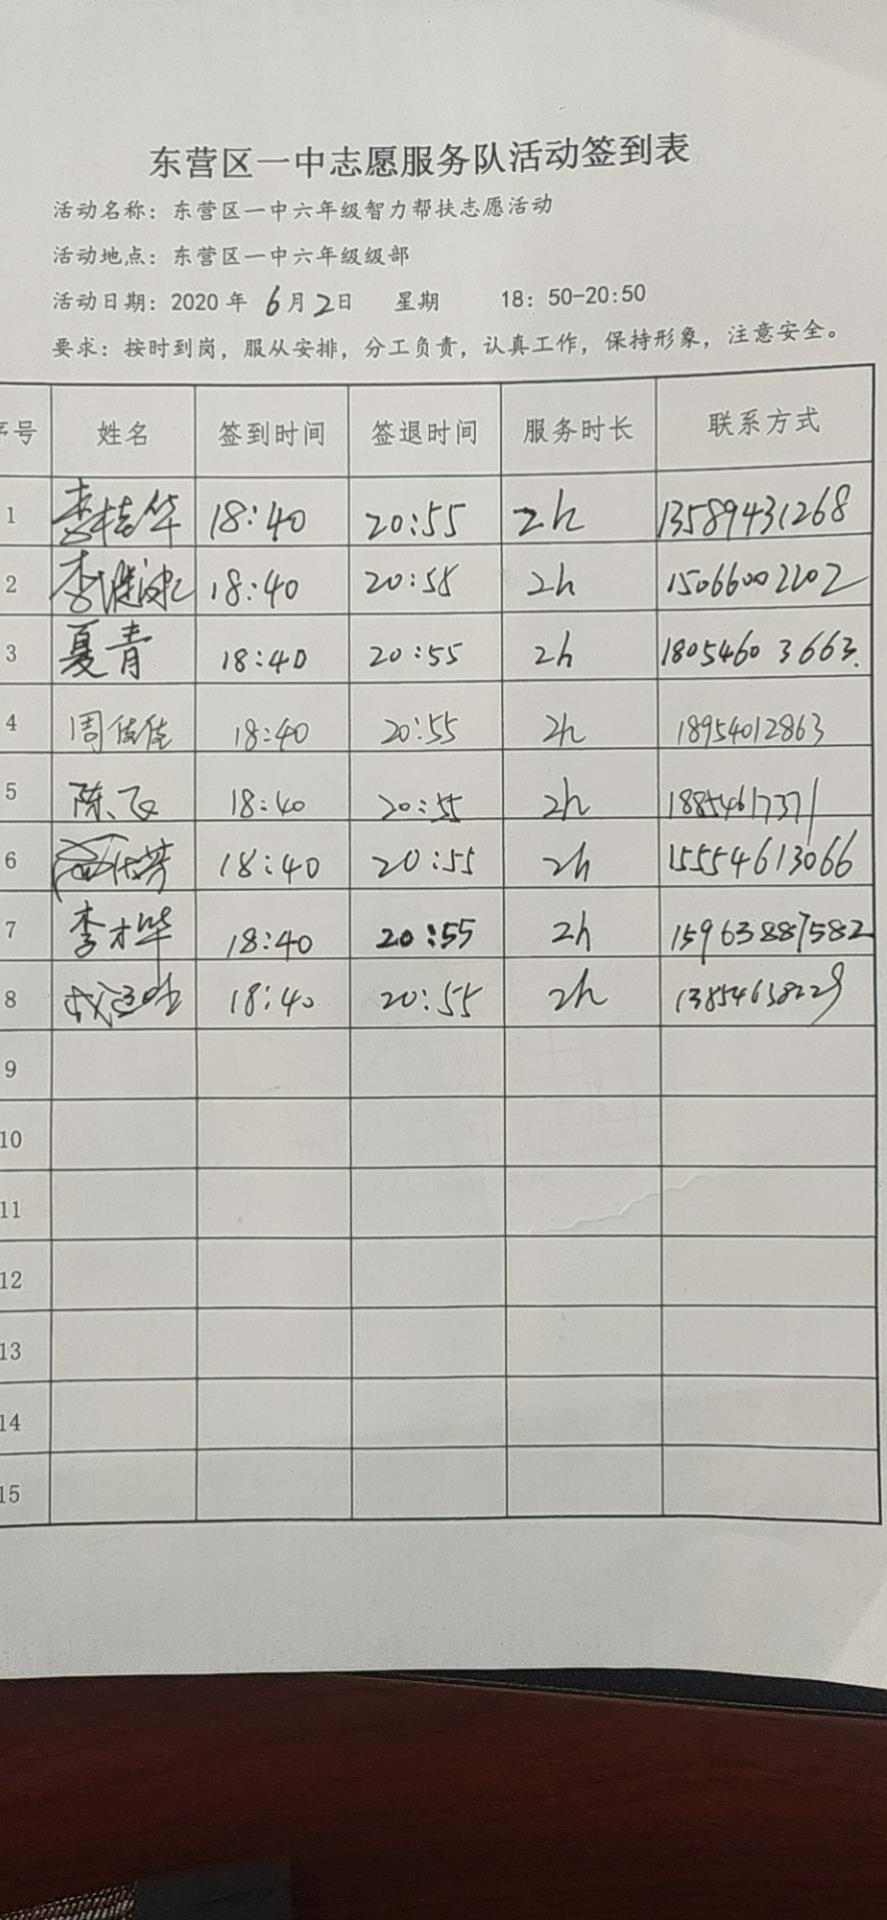 东营区一中志愿服务队活动签到表
活动名称：东营区一中六年级智力帮扶志愿活动
活动地点：东营区一中六年级级部
活动日期：2020 年 6月2日 星期 18：50-20:50
要求：按时到岗，服从安排，分工负责，认真工作，保持形象，注意安全。
序号 姓名 签到时间 签退时间 服务时长 联系方式
1 李桂华 18:40 20:55 2h 13589431268
2 18:40 20:58 2h 15066002202
3 夏青 18:40 20:55 2h 18054603663.
4 周佳佳 18:40 20:55 2h 18954012863
5 陈飞 18:40 20:55 2h 18854617371
6 18:40 20:55 2h 15554613066
7 李才华 18:40 20:55 2h 15963887582
8 18:40 20:55 2h 13854638229
9
10
11
12
13
14
15